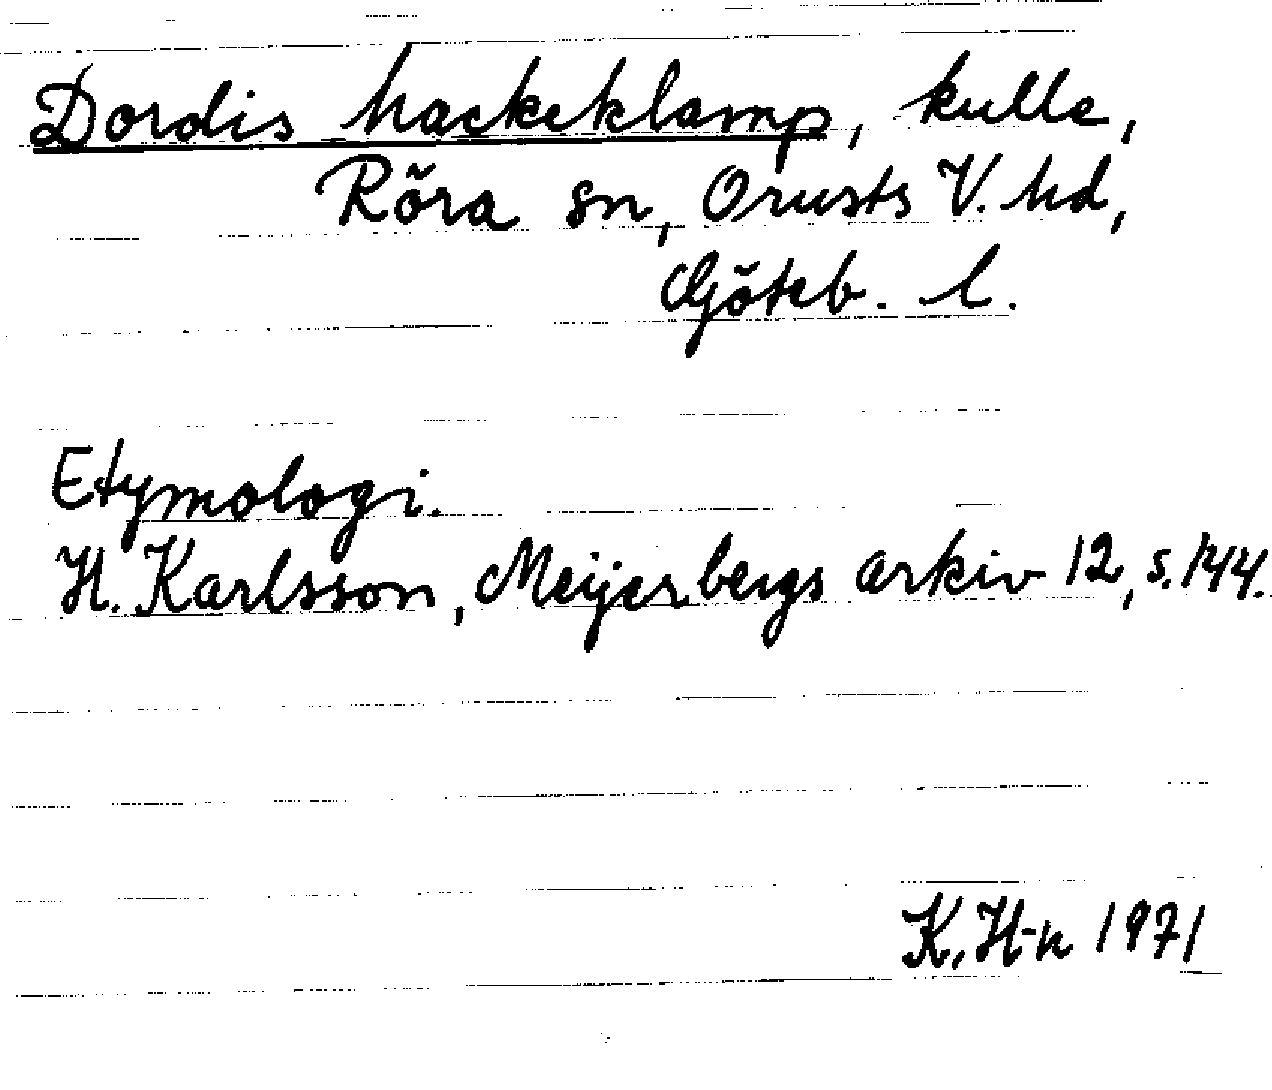 Dordis hackeklamp, kulle,
Röra sn, Orusts V. hd,
Göteb. l.
Etymologi.
H. Karlsson, Meijerbergs arkiv 12, s. 144.
K. H-n 1971